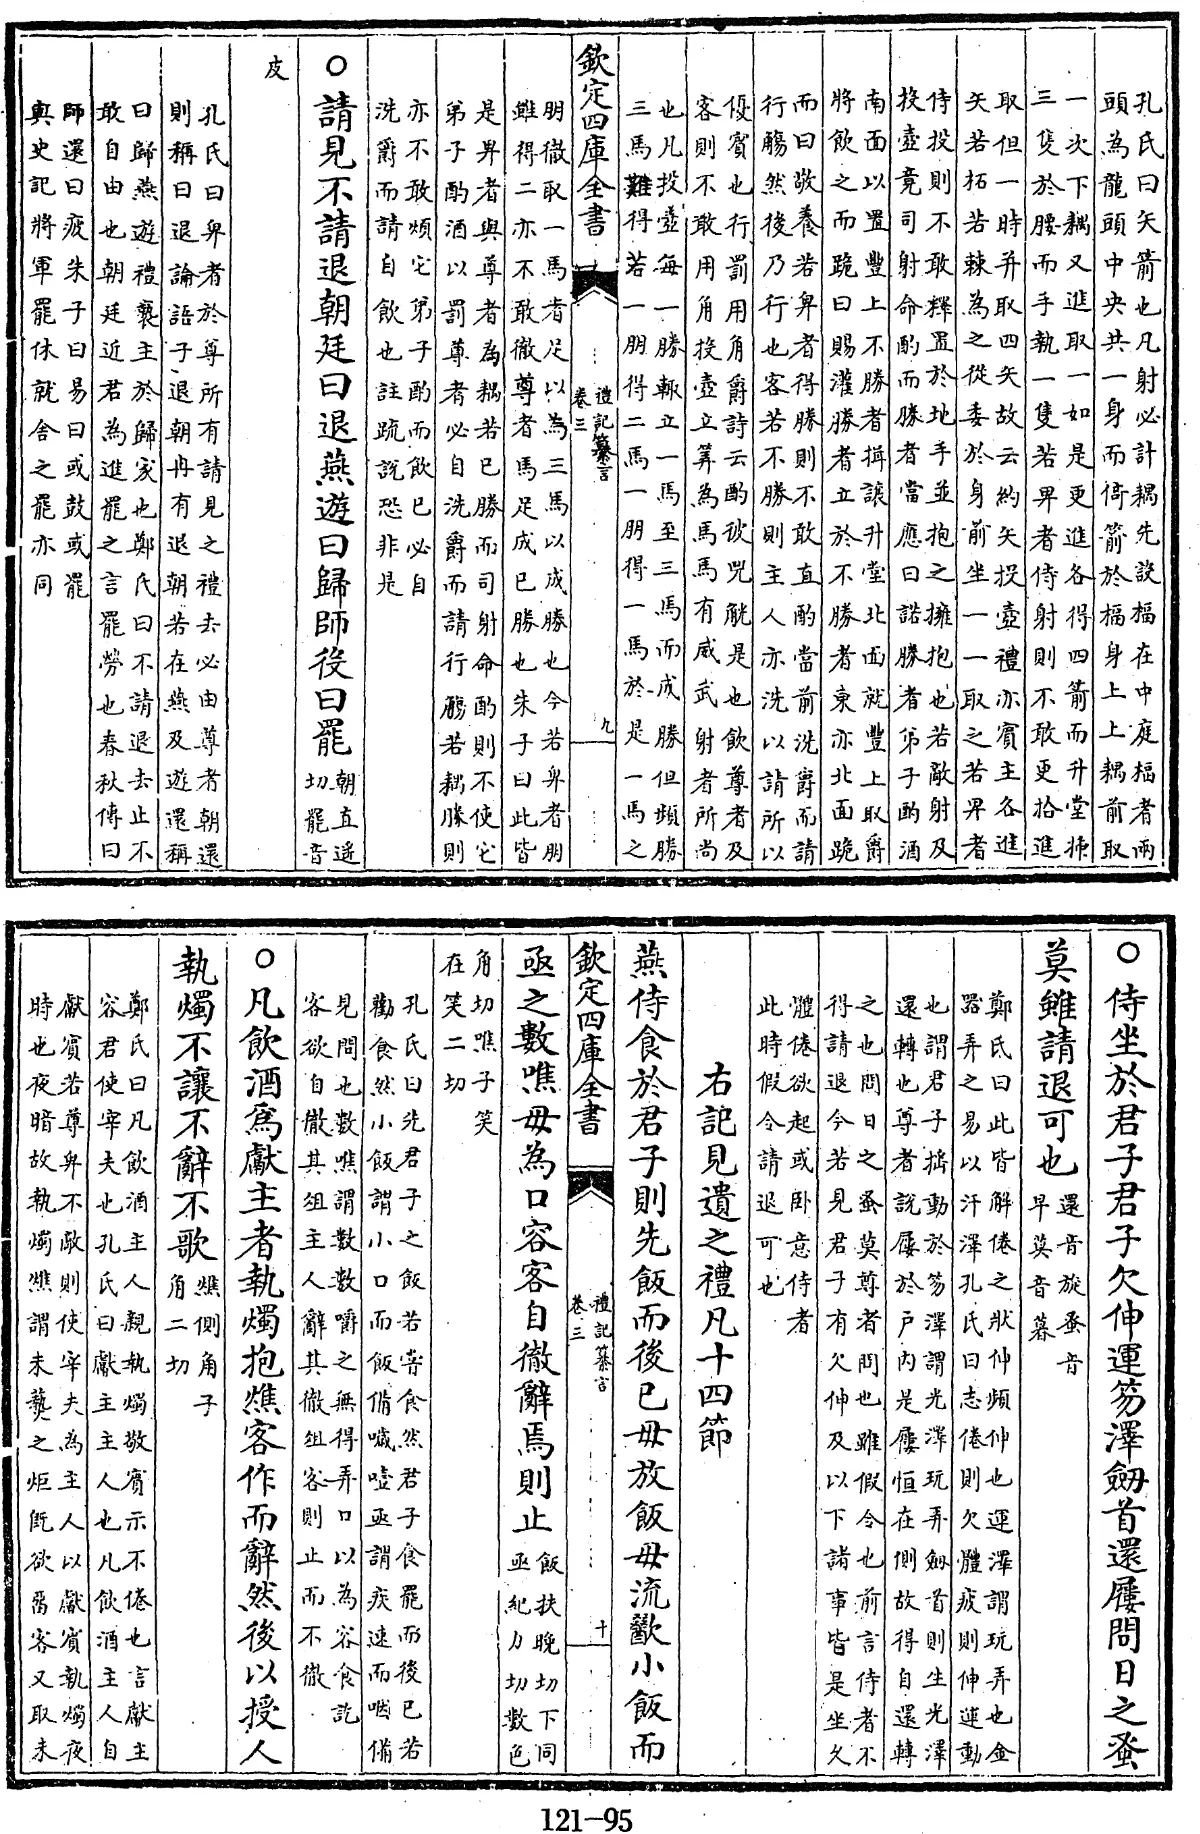 孔氏曰矢箭也凡射必計耦先設楅在中庭楅者兩
頭為龍頭中央共一身而倚箭於楅身上上耦前取
一次下耦又進取一如是更進各得四箭而升堂插
三隻於腰而手執一隻若卑者侍射則不敢更拾進
取但一時并取四矢故云約矢投壺禮亦賓主各進
矢若柘若棘為之從委於身前坐一一取之若卑者
侍投則不敢釋置於地手並抱之擁抱也若敵射及
投壺竟司射命酌而勝者當應曰諾勝者弟子酌酒
南面以置豐上不勝者揖讓升堂北面就豐上取爵
將飲之而跪曰賜灌勝者立於不勝者東亦北面跪
而曰敬養若卑者得勝則不敢直酌當前洗爵而請
行觴然後乃行也客若不勝則主人亦洗以請所以
優賓也行罰用角爵詩云酌彼兕觥是也飲尊者及
客則不敢用角投壺立筭為馬馬有威武射者所尚
也凡投壺每一勝輒立一馬至三馬而成勝但頻勝
三馬難得若一朋得二馬一朋得一馬於是一馬之
欽定四庫全書
禮記纂言
卷三
九
朋徹取一馬者足以為三馬以成勝也今若卑者朋
雖得二亦不敢徹尊者馬足成已勝也朱子曰此皆
是卑者與尊者為耦若已勝而司射命酌則不使它
弟子酌酒以罰尊者必自洗爵而請行觴若耦勝則
亦不敢煩它弟子酌而飲已必自
洗爵而請自飲也註疏說恐非是
○請見不請退朝廷曰退燕遊曰歸師役曰罷
朝直遥
切罷音
皮
孔氏曰卑者於尊所有請見之禮去必由尊者朝還
則稱曰退論語子退朝冉有退朝若在燕及遊還稱
曰歸燕遊禮褻主於歸家也鄭氏曰不請退去止不
敢自由也朝廷近君為進罷之言罷勞也春秋傳曰
師還曰疲朱子曰易曰或鼓或罷
與史記將軍罷休就舍之罷亦同
○侍坐於君子君子欠伸運笏澤劒首還屨問日之蚤
莫雖請退可也
還音旋蚤音
早莫音暮
鄭氏曰此皆解倦之狀伸頻伸也運澤謂玩弄也金
器弄之易以汗澤孔氏曰志倦則欠體疲則伸運動
也謂君子揺動於笏澤謂光澤玩弄劒首則生光澤
還轉也尊者說屨於戶內是屨恒在側故得自還轉
之也問日之蚤莫尊者問也雖假令也前言侍者不
得請退今若見君子有欠伸及以下諸事皆是坐久
體倦欲起或卧意侍者
此時假令請退可也
右記見遺之禮凡十四節
燕侍食於君子則先飯而後已毋放飯毋流歠小飯而
欽定四庫全書
禮記纂言
卷三
十
亟之數噍毋為口容客自徹辭焉則止
飯扶晚切下同
亟紀力切數色
角切噍子笑
在笑二切
孔氏曰先君子之飯若嘗食然君子食罷而後已若
勸食然小飯謂小口而飯備噦噎亟謂疾速而咽備
見問也數噍謂數數嚼之無得弄口以為容食訖
客欲自徹其俎主人辭其徹俎客則止而不徹
○凡飲酒為獻主者執燭抱燋客作而辭然後以授人
執燭不讓不辭不歌
燋側角子
角二切
鄭氏曰凡飲酒主人親執燭敬賓示不倦也言獻主
容君使宰夫也孔氏曰獻主主人也凡飲酒主人自
獻賓若尊卑不敵則使宰夫為主人以獻賓執燭夜
時也夜暗故執燭燋謂未爇之炬既欲留客又取未
121-95